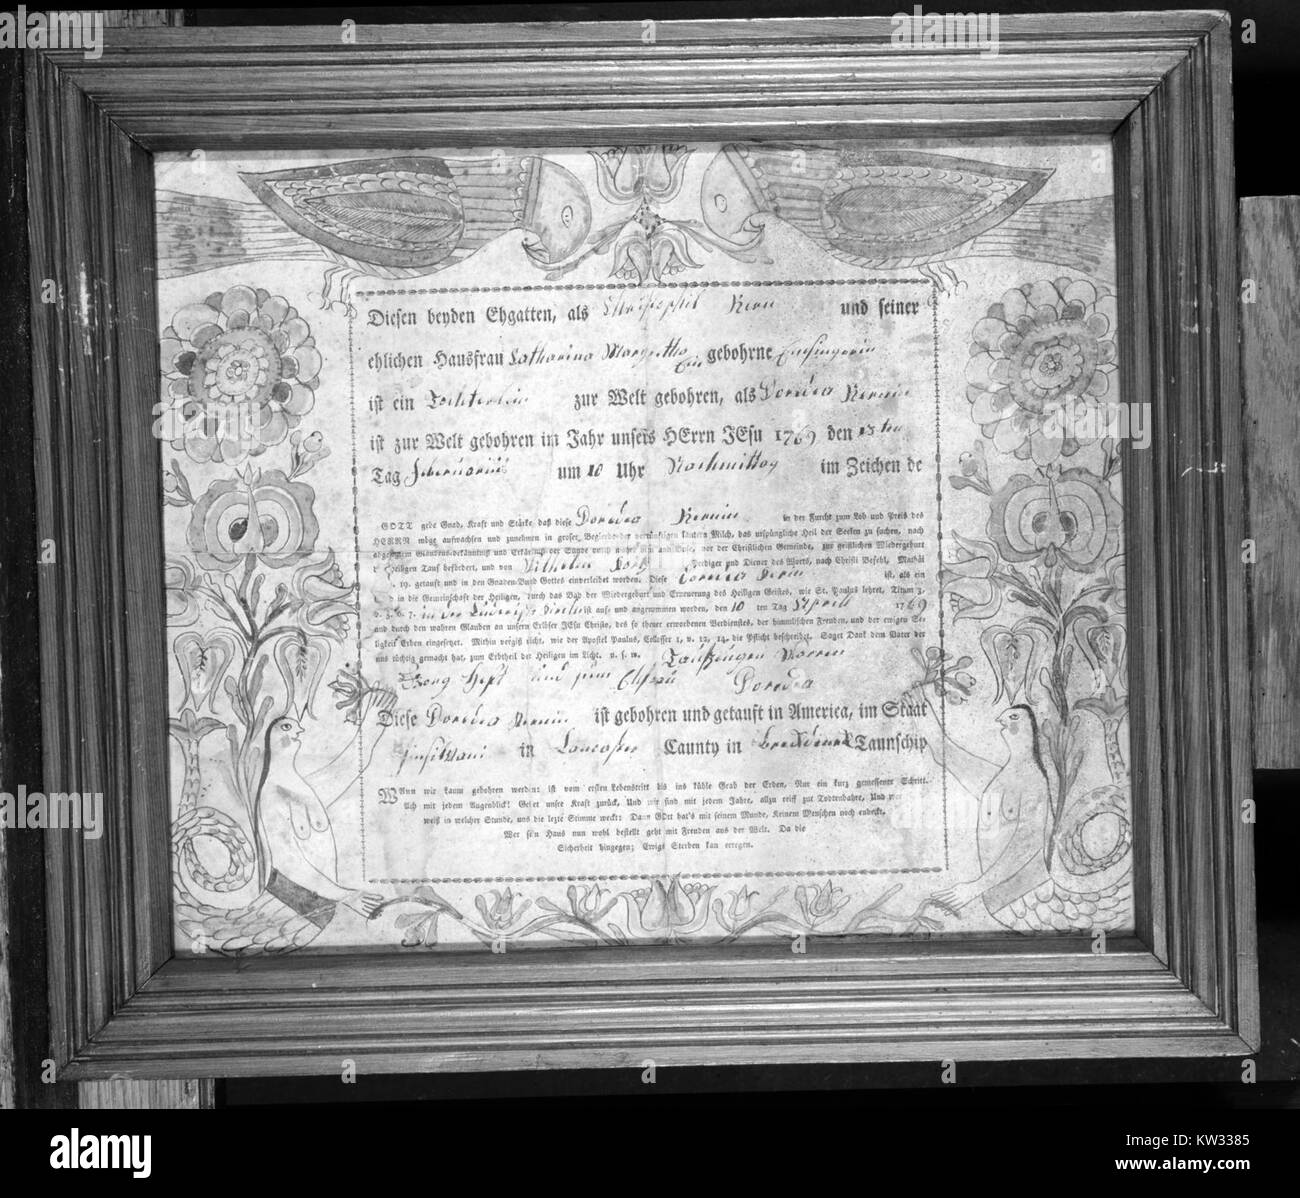 Diesen beyden Ehgatten, als Christophel Kern und seiner
ehlichen Hausfrau Catharina Margretha Ein gebohrne Ensingerin
ist ein Tochterlein zur Welt gebohren, als Doredea Kernin
ist zur Welt gebohren im Jahr unsers HErrn JEsu 1769 den 13ten
Tag Februarius um 10 Uhr Nachmittag im Zeichen de
GOTT gebe Gnad, Kraft und Stärke, daß diese Doredea Kernin in der Furcht zum Lob und Preis des
HERRN möge aufwachsen und zunehmen in groser Begierde der vernünftigen lautern Milch, das urspüngliche Heil der Seelen zu suchen, nach
abgelegtem Glaubens-bekäntniß und Erkäntniß der Sünde durch wahre Reu und Buse, vor der Christlichen Gemeinde, zur geistlichen Wiedergeburt
Heiligen Tauf befördert, und von Wilhelm Prediger und Diener des Worts, nach Christi Befehl, Mathäi
19. getauft und in den Gnaden-Bund Gottes einverleibet worden. Diese Doredea Kernin ist, als ein
in die Gemeinschaft der Heiligen, durch das Bad der Wiedergeburt und Erneuerung des Heiligen Geistes, wie St. Paulus lehret, Titum 3,
v. 5. 6. 7. in der Kirch ist auf= und angenommen worden, den 10 ten Tag Aprill 1769
und durch den wahren Glauben an unsern Erlöser JEsu Christo, des so theuer erworbenen Verdienstes, der himmlischen Freuden, und der ewigen See=
ligkeit Erben eingesetzet. Mithin vergiß nicht, wie der Apostel Paulus, Colosser 1, v. 12, 14. die Pflicht beschreibet. Saget Dank dem Vater der
uns tüchtig gemacht hat, zum Erbtheil der Heiligen im Licht. u. s. w. Taufzeugen Waren
und sein Ehfrau Doredea
Diese Doredea Kernin ist gebohren und getauft in America, im Staat
in Lancaster Caunty in Taunschip
WAnn wir kaum gebohren werden: ist vom ersten Lebenstritt bis ins kühle Grab der Erden, Nur ein kurz gemessener Schritt.
Ach mit jedem Augenblick! Gehet unsre Kraft zurück, Und wir sind mit jedem Jahre, allzu reiff zur Todtenbahre, Und wer
weiß in welcher Stunde, uns die lezte Stimme weckt: Dann GOtt hat's mit seinem Munde, Keinem Menschen noch endeckt,
Wer sein Haus nun wohl bestellt geht mit Freuden aus der Welt. Da die
Sicherheit hingegen; Ewigs Sterben kan erregen.
alamy
Image ID: KW3385
www.alamy.com